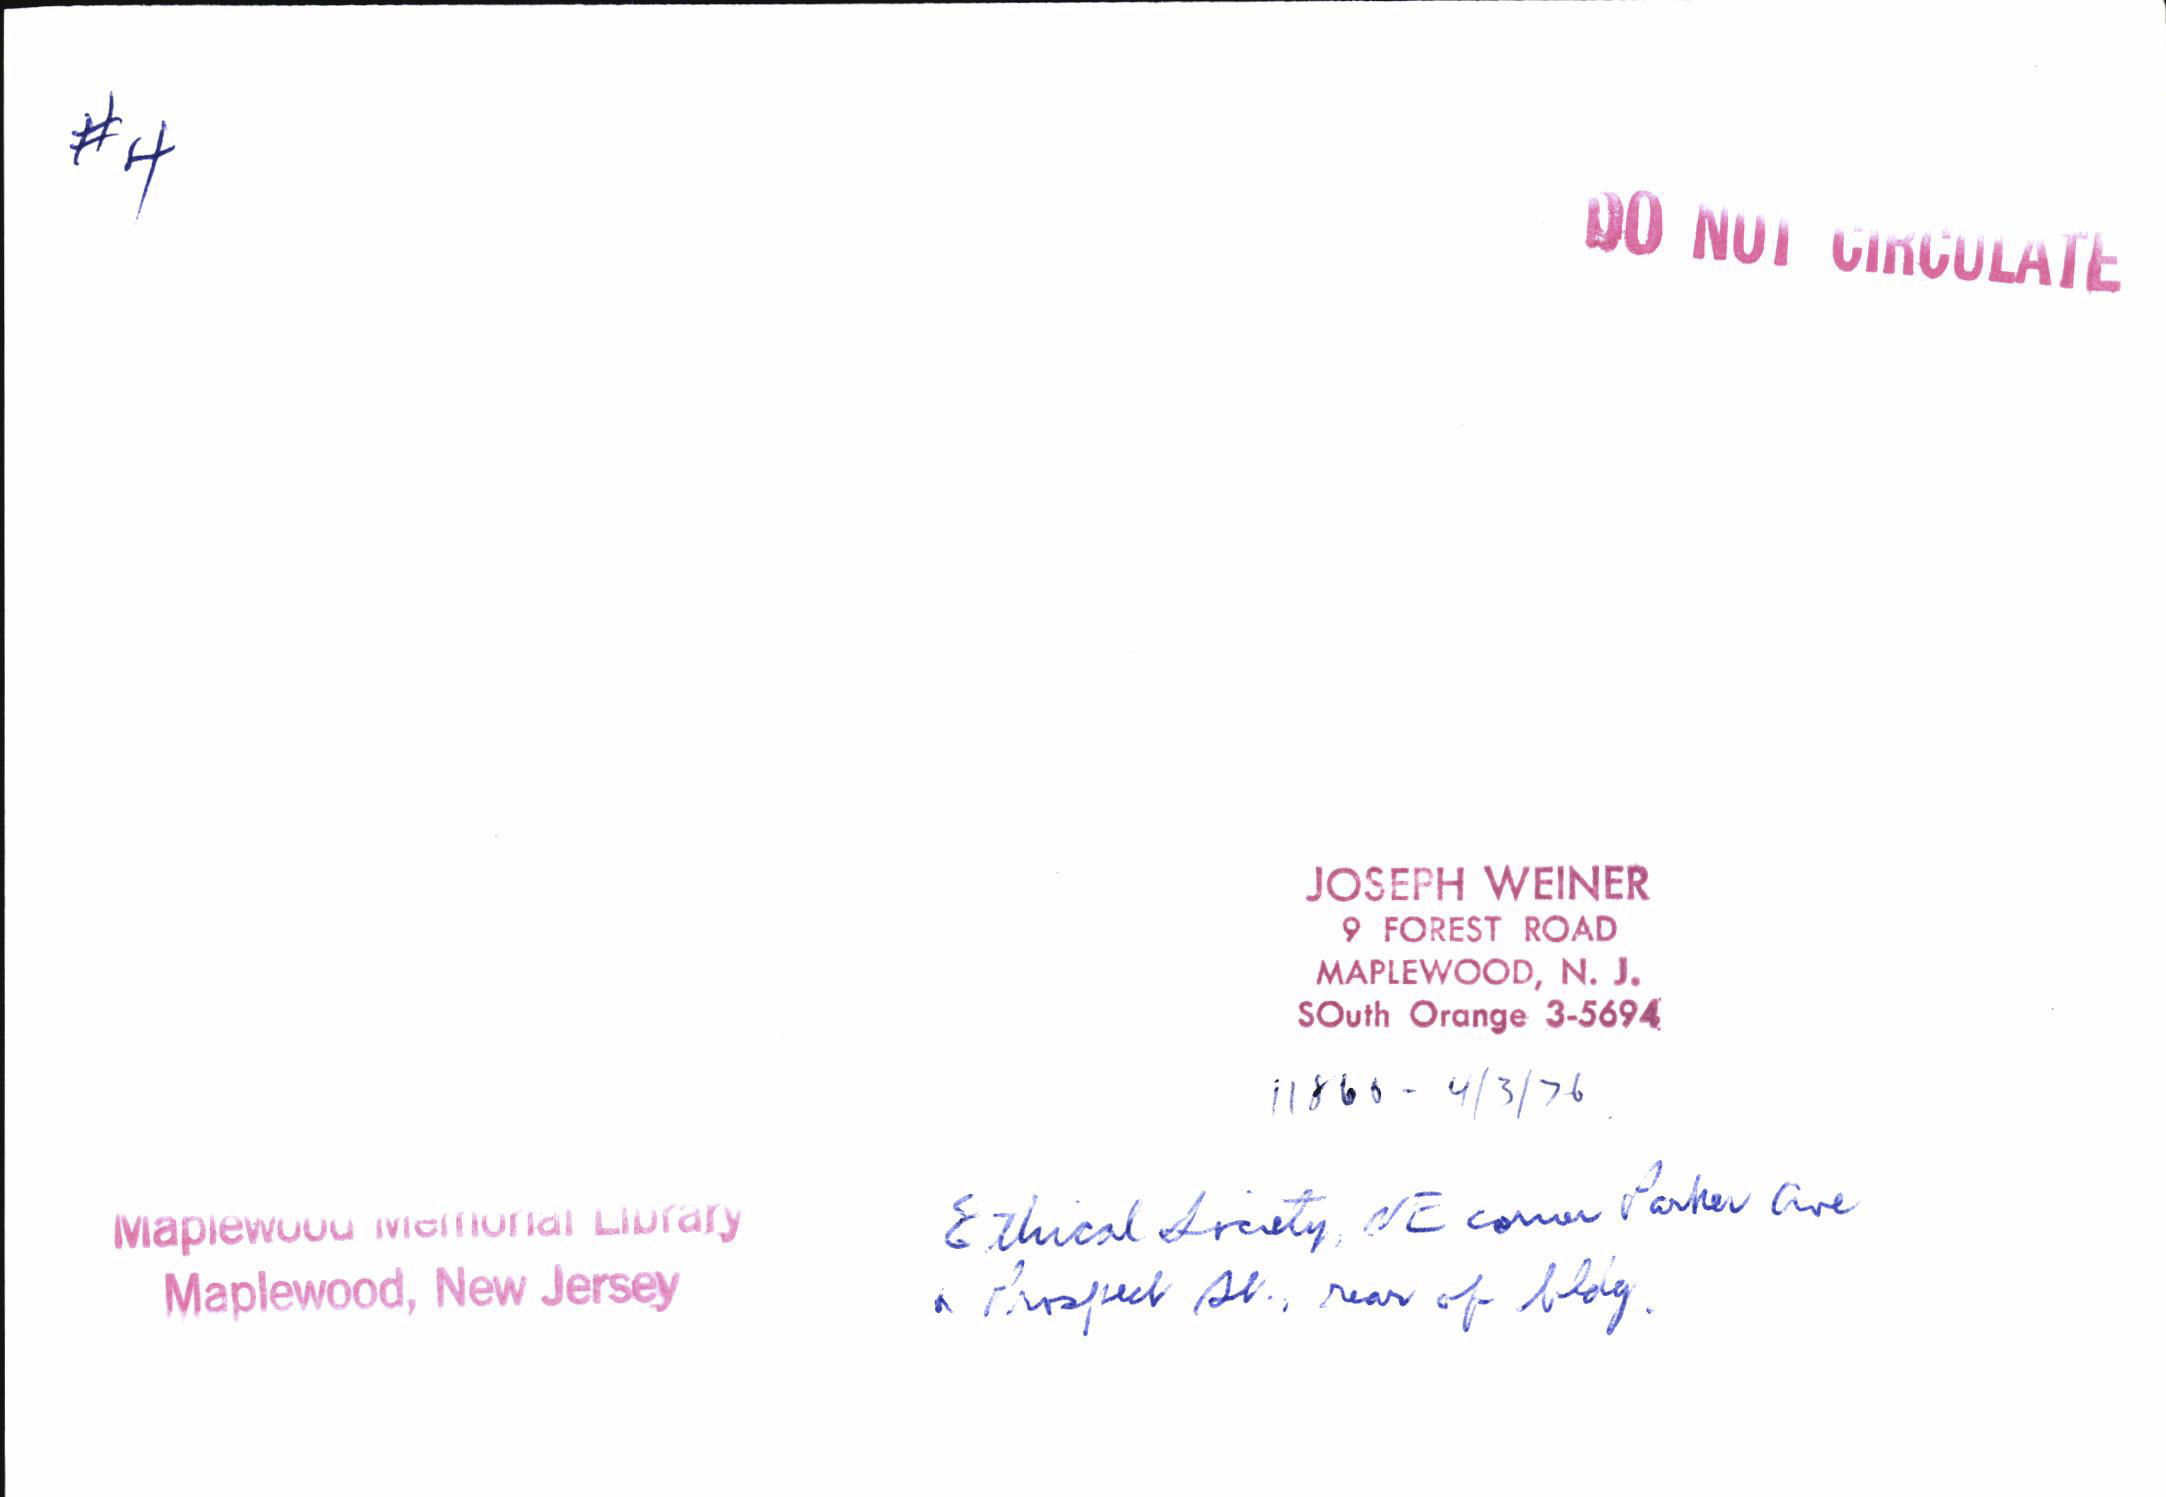 #4
DO NOT CIRCULATE
JOSEPH WEINER
9 FOREST ROAD
MAPLEWOOD, N. J.
SOuth Orange 3-5694
4/3/76
Ethical Society, NE corner Parker Ave
Prospect St., rear of bldg.
Maplewood Memorial Library
Maplewood, New Jersey